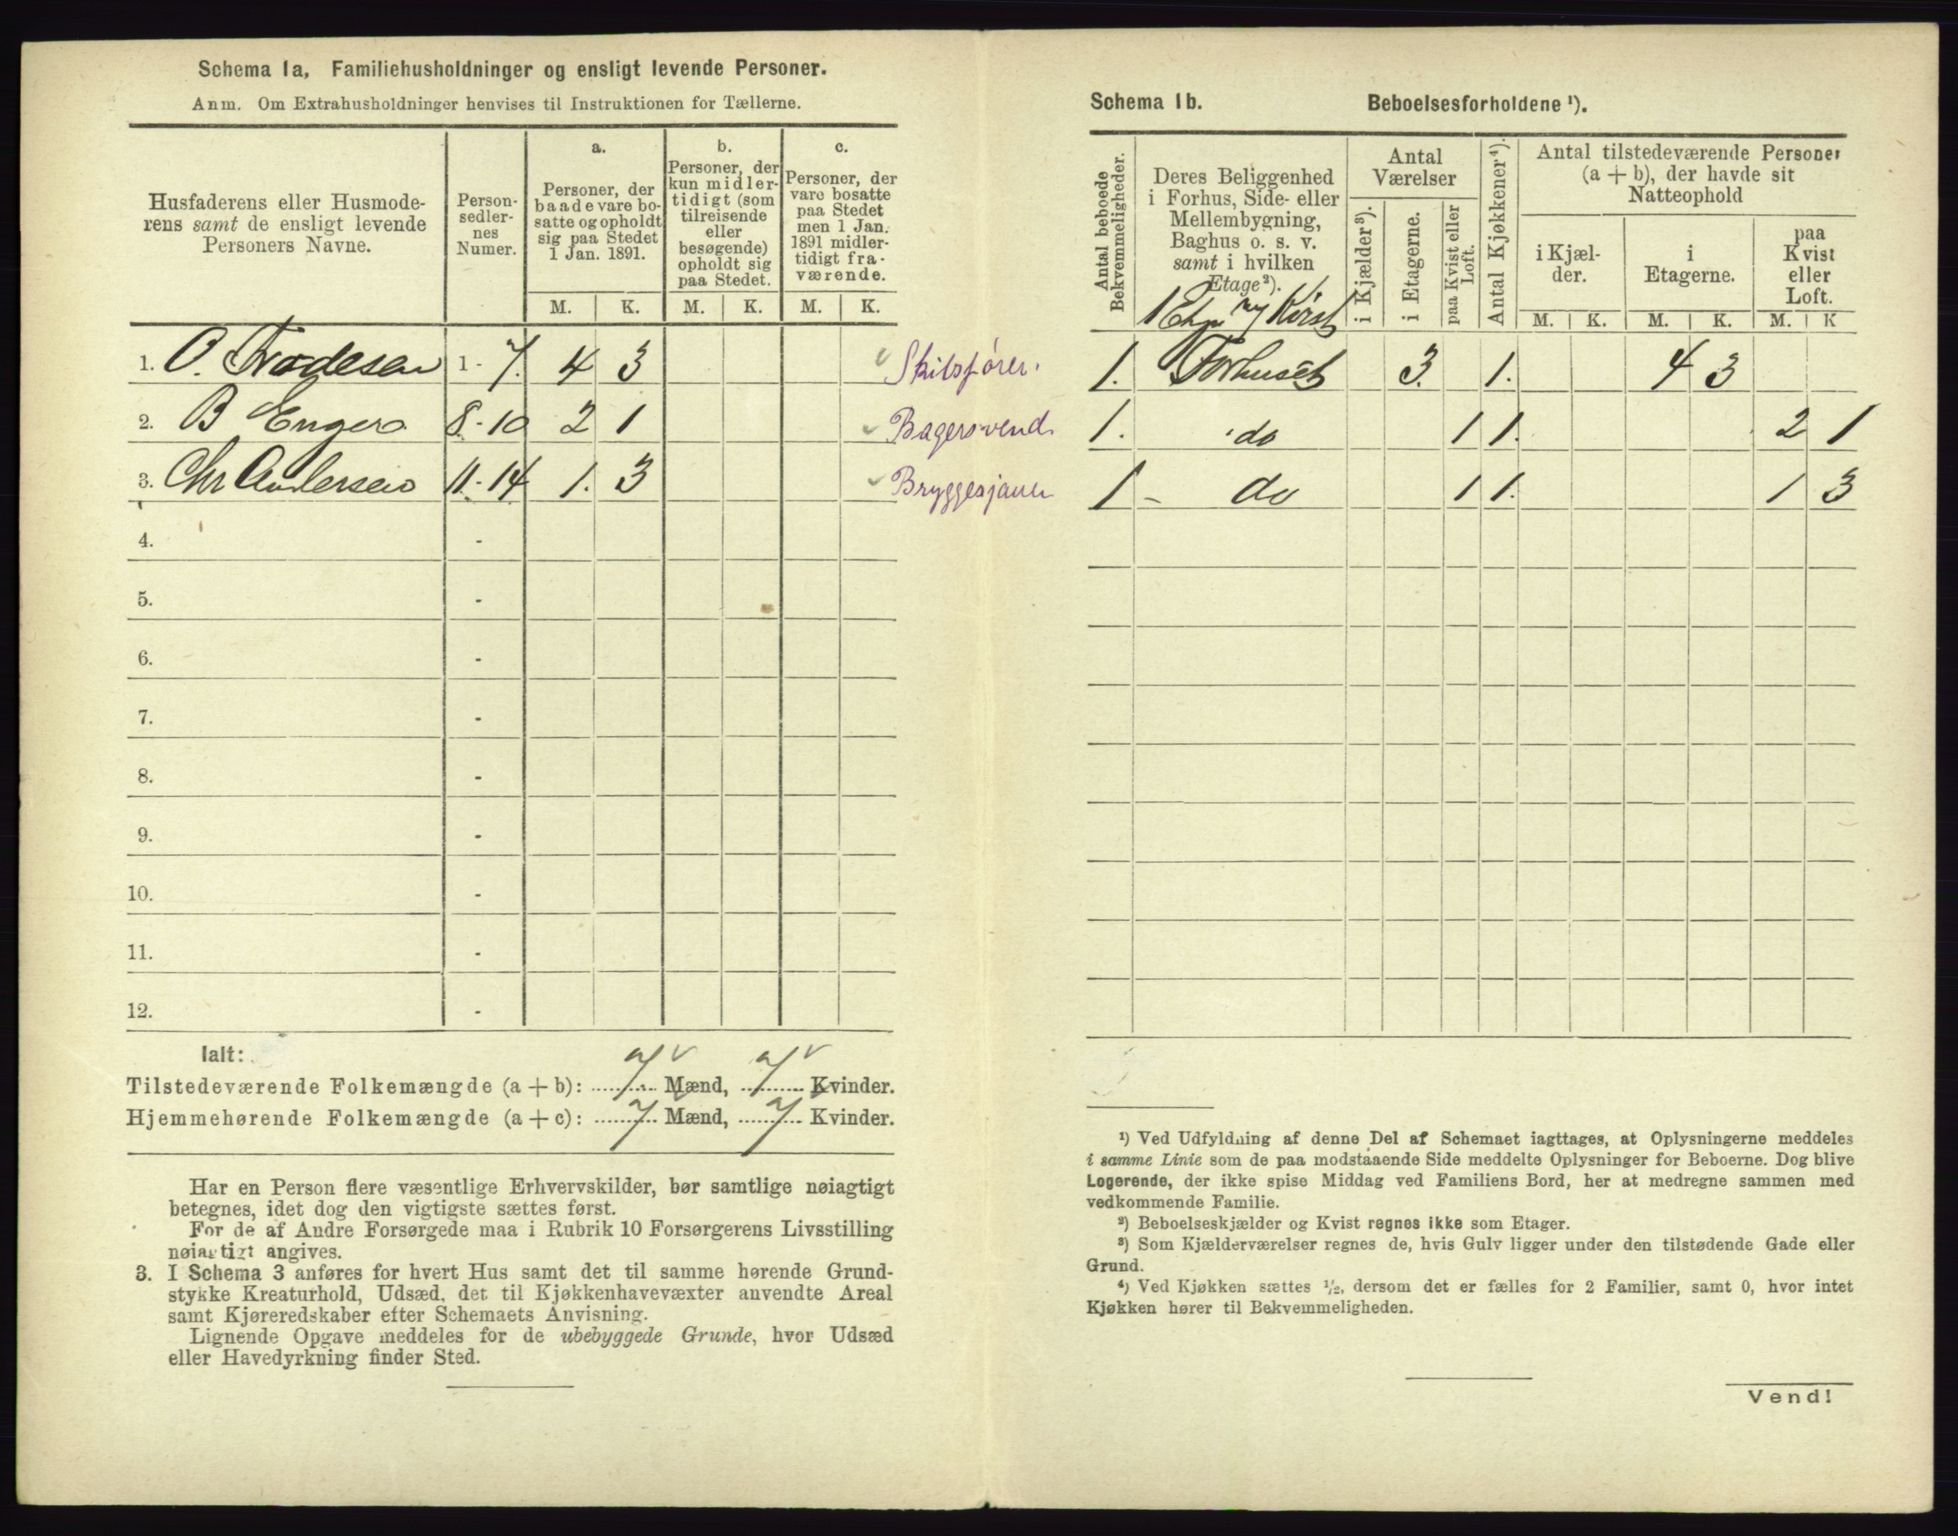 Schema 1a, Familiehusholdninger og ensligt levende Personer.
Anm. Om Extrahusholdninger henvises til Instruktionen for Tællerne.
Husfaderens eller Husmoderens samt de ensligt levende Personers Navne.
Personsedlernes Numer.
a.
Personer, der baade vare bosatte og opholdt sig paa Stedet 1 Jan. 1891.
b.
Personer, der kun midlertidigt (som tilreisende eller besøgende) opholdt sig paa Stedet.
c.
Personer, der vare bosatte paa Stedet men 1 Jan. 1891 midlertidigt fraværende.
M. K. M. K. M. K.
1. O. 1-7. 4 3 Skibsfører.
2. B Engers 8-10 2 1 Bagersvend.
3. Chr Andersen 11-14 1. 3 Bryggesjauer
4. -
5. -
6. -
7. -
8. -
9. -
10. -
11. -
12. -
Ialt:
Tilstedeværende Folkemængde (a + b): 7 Mænd, 7 Kvinder.
Hjemmehørende Folkemængde (a + c): 7 Mænd, 7 Kvinder.
Har en Person flere væsentlige Erhvervskilder, bør samtlige nøiagtigt
betegnes, idet dog den vigtigste sættes først.
For de af Andre Forsørgede maa i Rubrik 10 Forsørgerens Livsstilling
nøiagtigt angives.
3. I Schema 3 anføres for hvert Hus samt det til samme hørende Grund-
stykke Kreaturhold, Udsæd, det til Kjøkkenhavevæxter anvendte Areal
samt Kjøreredskaber efter Schemaets Anvisning.
Lignende Opgave meddeles for de ubebyggede Grunde, hvor Udsæd
eller Havedyrkning finder Sted.
Schema 1b. Beboelsesforholdene ¹).
Antal beboede Bekvemmeligheder.
Deres Beliggenhed i Forhus, Side- eller Mellembygning, Baghus o. s. v. samt i hvilken Etage²).
Antal Værelser
i Kjælder³).
i Etagerne.
paa Kvist eller Loft.
Antal Kjøkkener⁴).
Antal tilstedeværende Personer (a + b), der havde sit Natteophold
i Kjælder.
i Etagerne.
paa Kvist eller Loft.
M. K. M. K. M. K
1 Etg og Kvist
1. Forhuset 3. 1. 4 3
1. do 1 1. 2 1
1 - do 1 1. 1 3
¹) Ved Udfyldning af denne Del af Schemaet iagttages, at Oplysningerne meddeles
i samme Linie som de paa modstaaende Side meddelte Oplysninger for Beboerne. Dog blive
Logerende, der ikke spise Middag ved Familiens Bord, her at medregne sammen med
vedkommende Familie.
²) Beboelseskjælder og Kvist regnes ikke som Etager.
³) Som Kjælderværelser regnes de, hvis Gulv ligger under den tilstødende Gade eller
Grund.
⁴) Ved Kjøkken sættes ½, dersom det er fælles for 2 Familier, samt 0, hvor intet
Kjøkken hører til Bekvemmeligheden.
Vend!